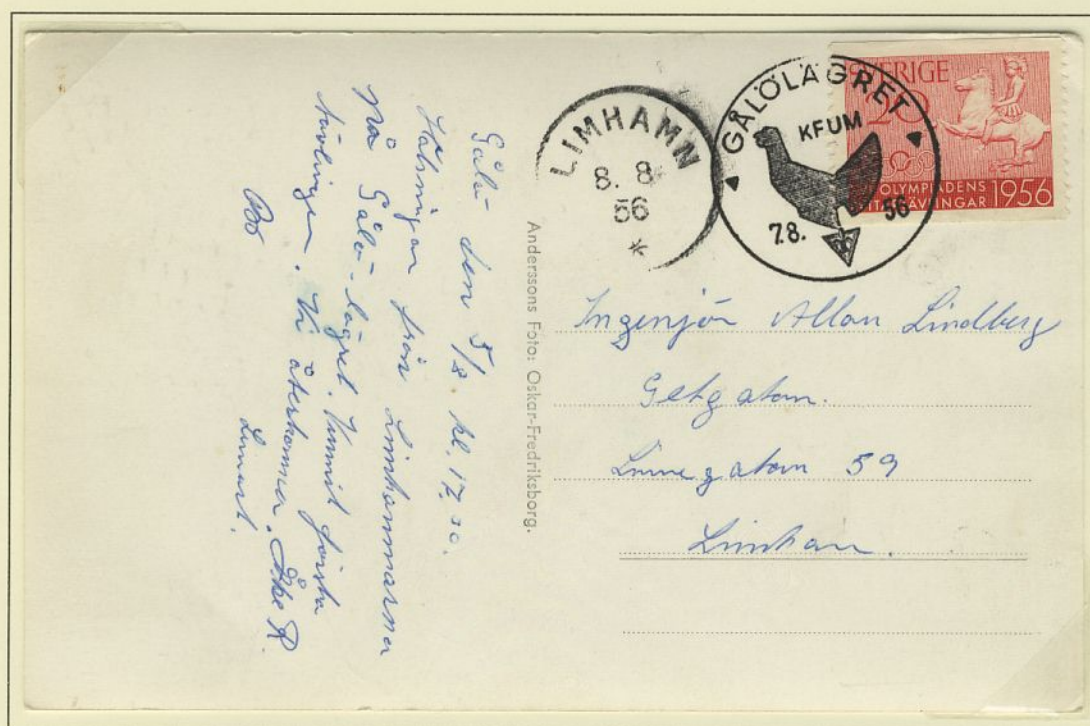 Gålö den 5/8. kl. 17,30.
Hälsningar från Limhamnarna
på Gålö-lägret. Vunnit första
tävlingen. Vi återkommer. Åke R.
Bo Lennart.
Anderssons Foto: Oskar-Fredriksborg.
LIMHAMN
8. 8
56
*
GÅLÖLÄGRET
KFUM
7.8. 56
SVERIGE
20
OLYMPIADENS
1956
Ingenjör Allan Lindberg
Getgatan.
Linnegatan 59
Limhan.